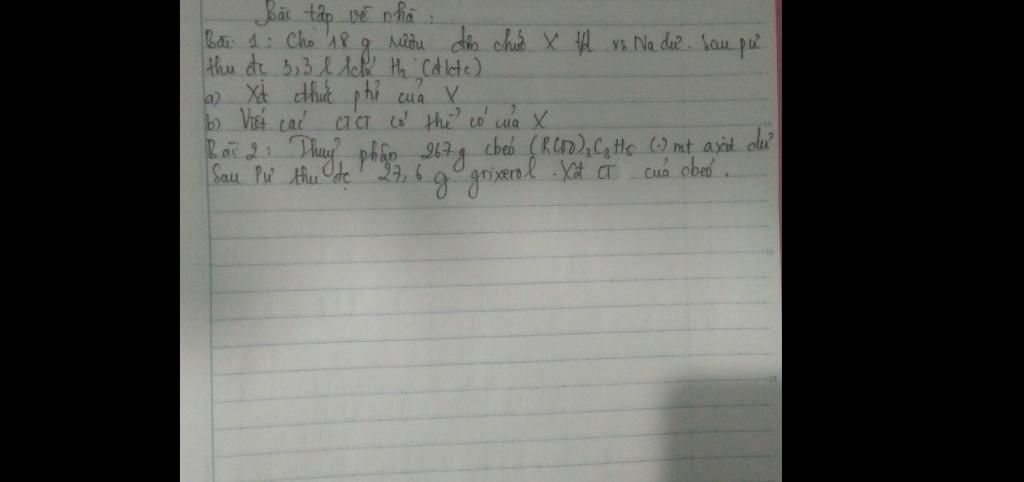 Bài tập về nhà :
Bài 1 : Cho 18 g rượu đơn chức X t/d vs Na dư. Sau pư
thu đc 3,3 l khí H₂ (đktc)
a) Xđ cthức ptử của X
b) Viết các CTCT có thể có của X
Bài 2 : Thuỷ phân 267 g cbéo (RCOO)₃C₃H₅ (.) mt axit dư
Sau pư thu đc 27,6 g grixerol . Xđ CT của cbéo .